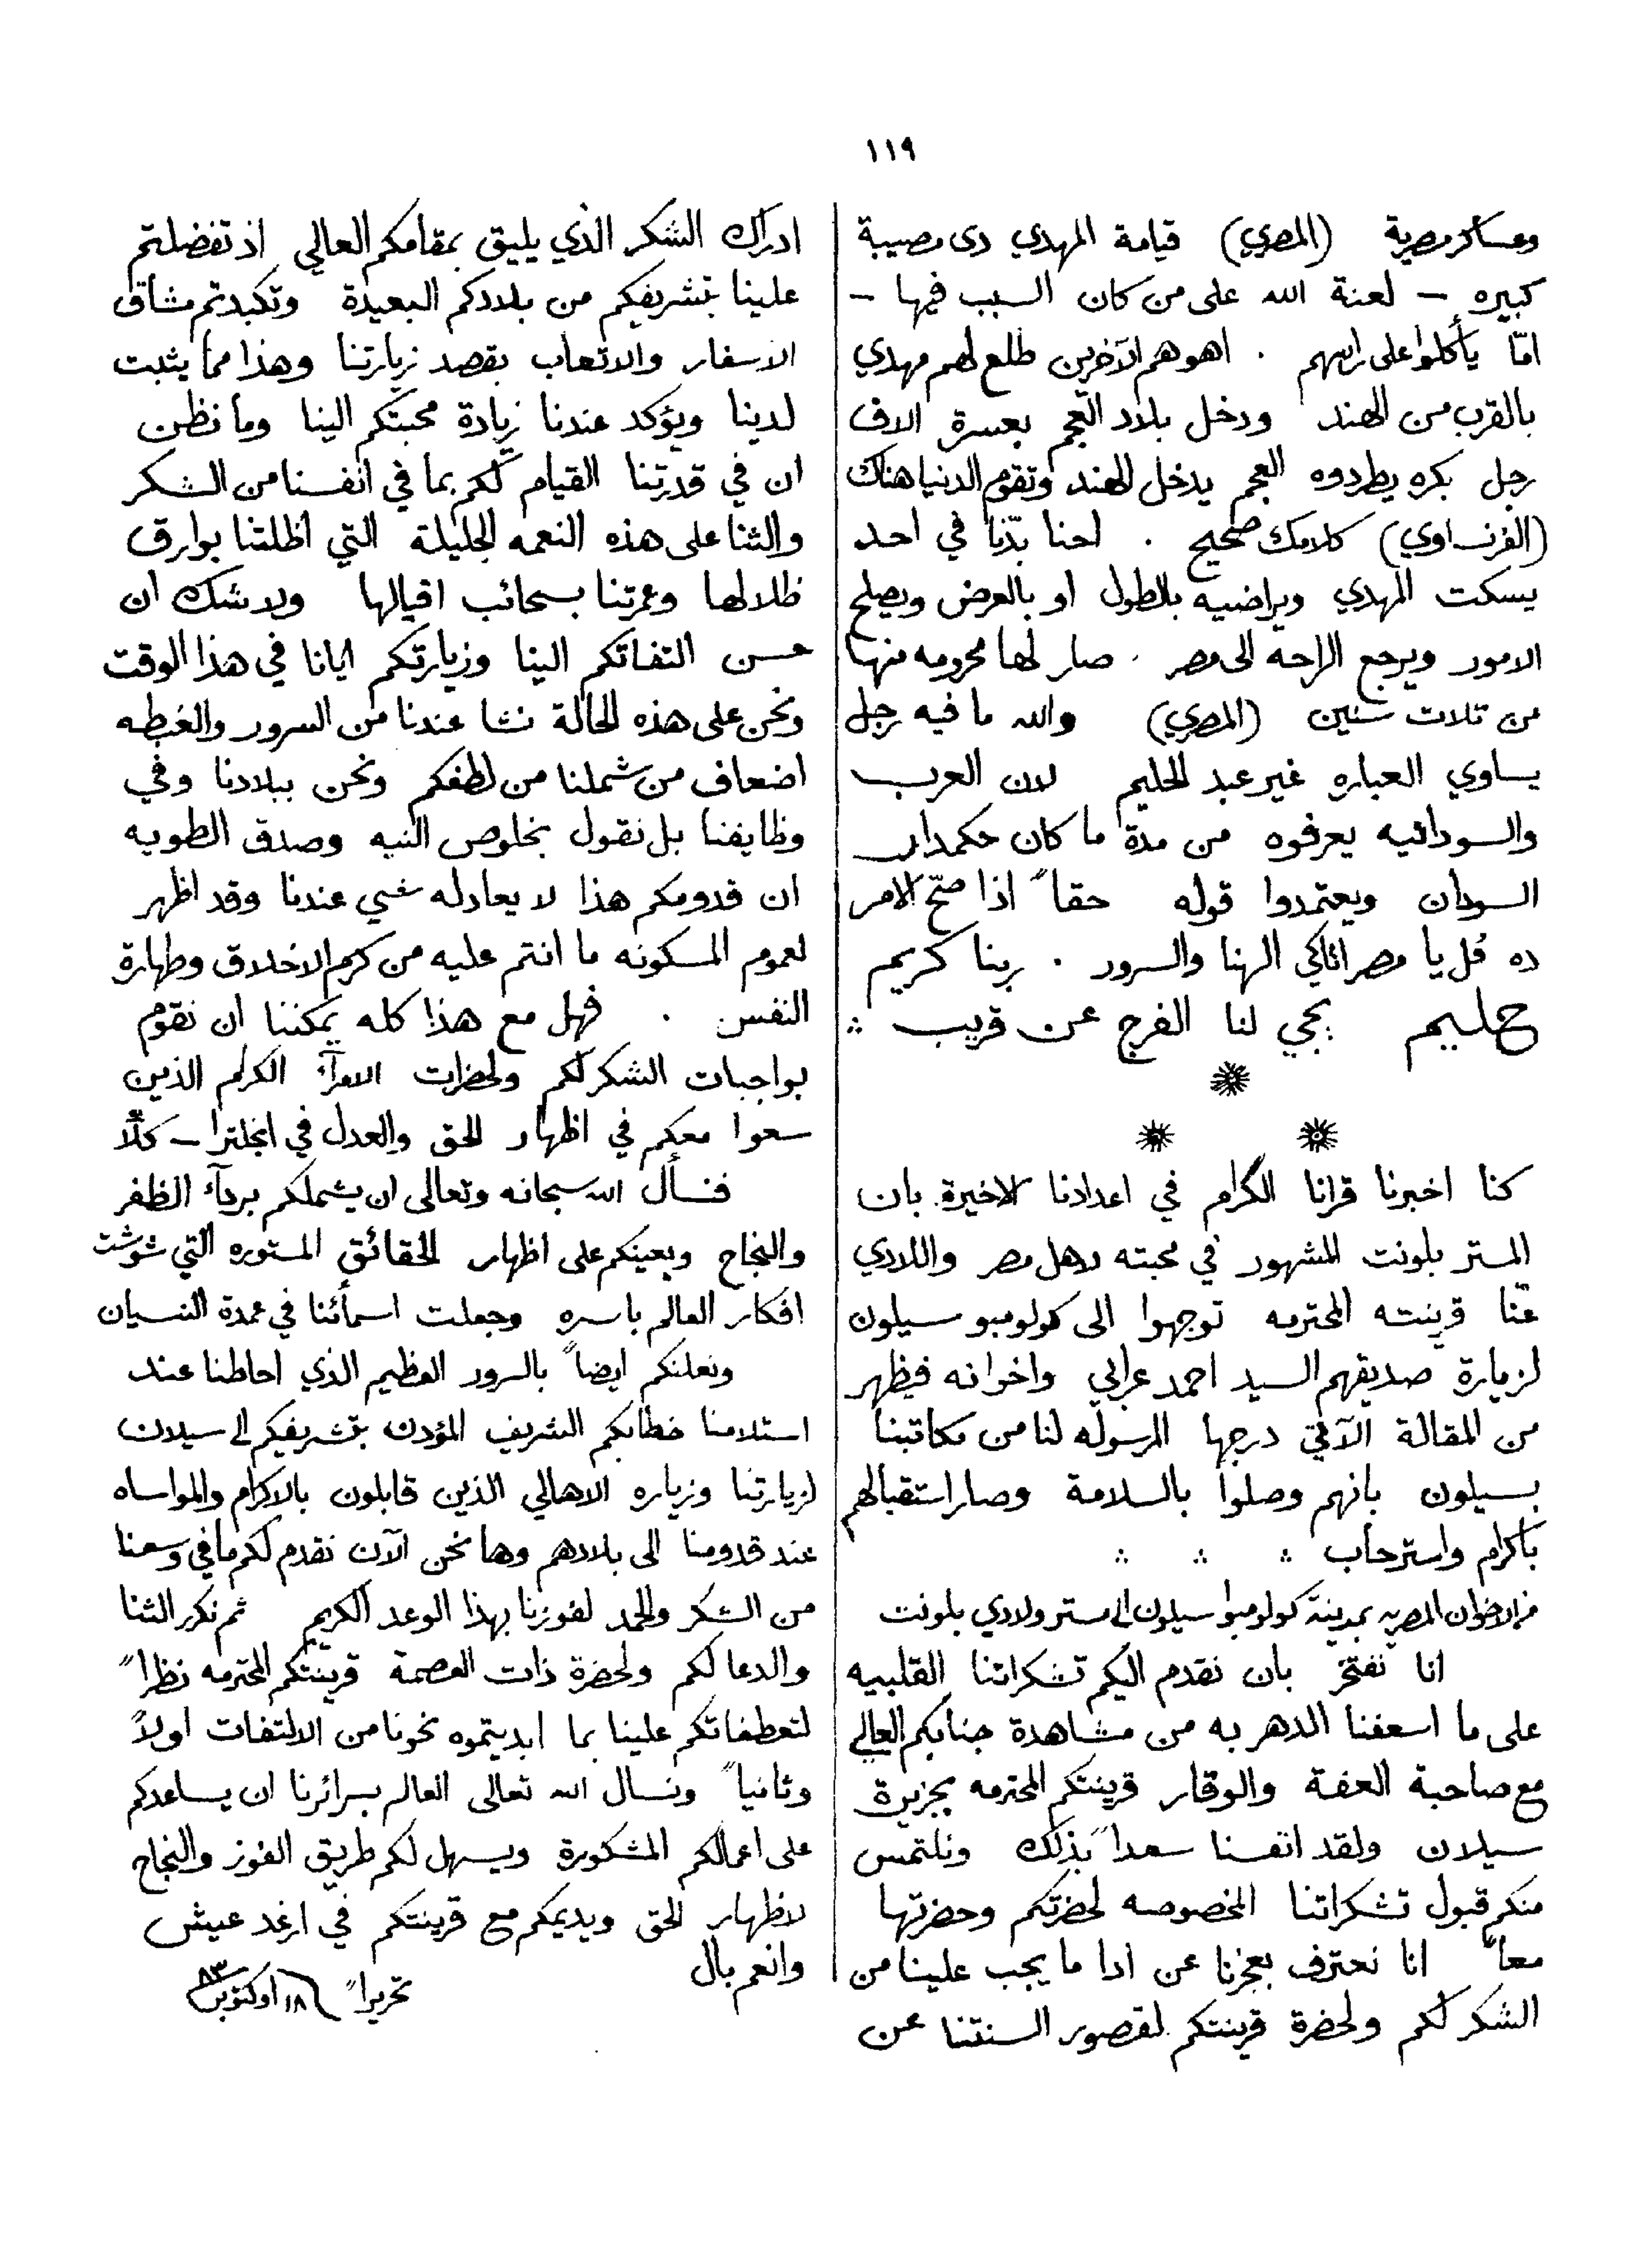 ١١٩
وعساكر مصرية (المصري) قيامة المهدي دى مصيبة
كبيره – لعنة الله على من كان السبب فيها –
امّا يأكلوا على راسهم . اهو هم الآخرين طلع لهم مهدي
بالقرب من الهند ودخل بلاد العجم بعسرة الاف
رجل بكره يطردوه العجم يدخل الهند وتقوم الدنيا هناك
(الفرنساوي) كلامك صحيح . احنا بدّنا في احد
يسكت المهدي ويراضيه بالطول او بالعرض ويصلح
الامور ويرجع الراحه الى مصر . صار لها محرومه منها
من تلات سنين (المصري) والله ما فيه رجل
يساوي العباره غير عبد الحليم لان العرب
والسودانيه يعرفوه من مدة ما كان حكمدار
السودان ويعتمدوا قوله حقاً اذا صحّ الامر
ده قُل يا مصر اتاكي الهنا والسرور . ربنا كريم
حليم يجي لنا الفرج عن قريب
كنا اخبرنا قرانا الكرام في اعدادنا الاخيرة بان
المستر بلونت المشهور في محبته لاهل مصر واللادي
عنّا قرينته المحترمه توجهوا الى كولومبو سيلون
لزيارة صديقهم السيد احمد عرابي واخوانه فيظهر
من المقالة الآتي درجها المرسوله لنا من مكاتبنا
بسيلون بانهم وصلوا بالسلامة وصار استقبالهم
باكرام واسترحاب
من الاخوان المصريه بمدينة كولومبو سيلون الى مستر ولادي بلونت
انا نفتخر بان نقدم اليكم تشكراتنا القلبيه
على ما اسعفنا الدهر به من مشاهدة جنابكم العالي
مع صاحبة العفة والوقار قرينتكم المحترمه بجزيرة
سيلان ولقد انفسنا سعداً بذلك ونلتمس
منكم قبول تشكراتنا المخصوصه لحضرتكم وحضرتها
معاً انا نعترف بعجزنا عن ادا ما يجب علينا من
الشكر لكم ولحضرة قرينتكم لقصور السنتنا عن
ادراك الشكر الذي يليق بمقامكم العالي اذ تفضلتم
علينا بتشريفكم من بلادكم البعيدة وتكبدتم مشاق
الاسفار والاتعاب بقصد زيارتنا وهذا مما يثبت
لدينا ويؤكد عندنا زيادة محبتكم الينا وما نظن
ان في قدرتنا القيام لكم بما في انفسنا من الشكر
والثنا على هذه النعمه الجليلة التي اظلتنا بوارق
ظلالها وعمرتنا بسحائب اقبالها ولا شك ان
حسن التفاتكم الينا وزيارتكم ايانا في هذا الوقت
ونحن على هذه الحالة نشا عندنا من السرور والغبطه
اضعاف من شملنا من لطفكم ونحن ببلادنا وفي
وظايفنا بل نقول بخلوص النيه وصدق الطويه
ان قدومكم هذا لا يعادله شي عندنا وقد اظهر
لعموم المسكونه ما انتم عليه من كرم الاخلاق وطهارة
النفس . فهل مع هذا كله يمكننا ان نقوم
بواجبات الشكر لكم ولحضرات الامرآء الكرام الذين
سعوا معكم في اظهار الحق والعدل في انجلترا – كلّا
فنسأل الله سبحانه وتعالى ان يشملكم بردآء الظفر
والنجاح ويعينكم على اظهار الحقائق المستوره التي شوشت
افكار العالم باسره وجعلت اسمأئنا في عمدة النسيان
ونعلنكم ايضاً بالسرور العظيم الذي احاطنا عند
استلامنا خطابكم الشريف المؤذن بتشريفكم الى سيلان
لزيارتنا وزياره الاهالي الذين قابلون بالاكرام والمواساه
عند قدومنا الى بلادهم وها نحن الآن نقدم لكم ما في وسعنا
من الشكر والحمد لفوزنا بهذا الوعد الكريم ثم نكرر الثنا
والدعا لكم ولحضرة ذات العصمة قرينتكم المحترمه نظراً
لتعطفاتكم علينا بما ابديتموه نحونا من الالتفات اولاً
وثانياً ونسال الله تعالى العالم بسرائرنا ان يساعدكم
على اعمالكم المشكورة ويسهل لكم طريق الفوز والنجاح
لاظهار الحق ويديمكم مع قرينتكم في ارغد عيش
وانعم بال
تحريراً ١٨ اوكتوبر ٨٣